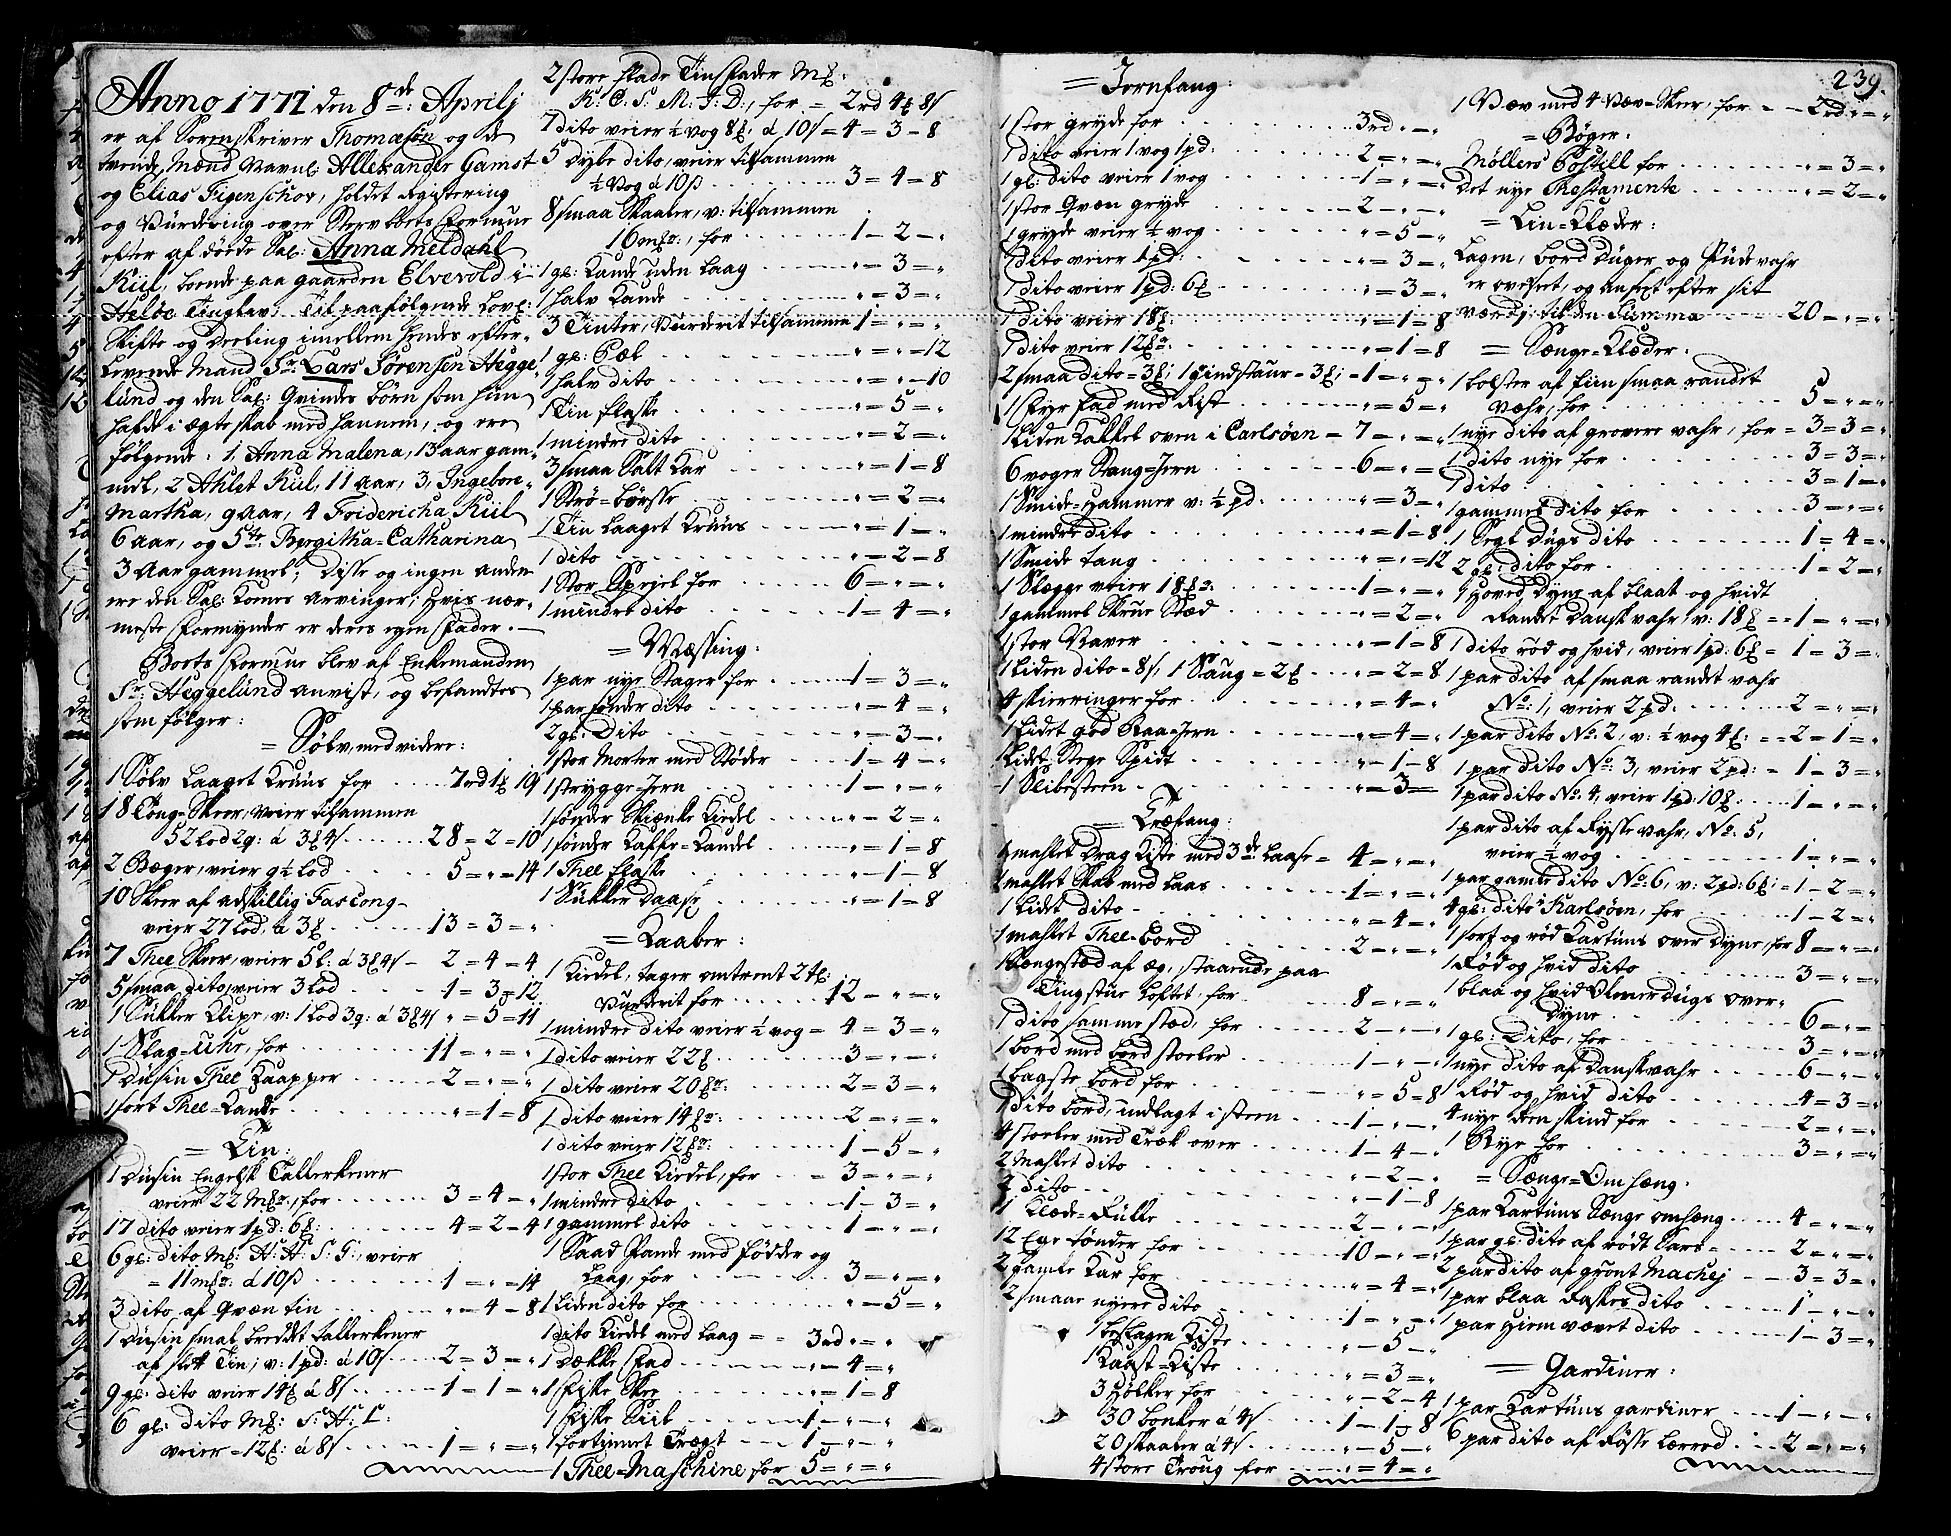 Anno 1777 den 8de: Aprilj
er af Sorenskriver Thomasøn og de
tvende Mænd Navnl: Allexander Gamst
og Elias Figenschov, holdet Registering
og Vurdering over Sterv boets Formue
efter af døde Sal: Anna Meldahl
Kiil, boende paa gaarden Elvevold i
Helöe Tinglav; Til paafølgende Lovl:
Skifte og Deeling imellem hendes efter-
Levende Mand Sr: Lars Sörensen Hegge
lund og den Sal: Qvindes börn som hun
hafde i ægteskab med hannem, og ere
følgende: 1. Anna Malena, 13 aar gam-
mel, 2 Ahlet Kiil, 11 aar, 3. Ingebore-
Martha, 9 aar, 4 Fridericha Kiil
6 aar, og 5te Bergitha=Catharina
3 aar gammel; Disse og ingen anden
ere den Sal: Kones arvinger; Hvis nær-
meste Formynder er deres egen Fader.
Boets Formue blev af Enkemanden
Sr: Heggelund anvist, og befandtes
som følger:
= Sølv, med videre:
1 Sølv Laaget Kruus for 7rd 1 19
18 Eong-Skeer, veier tilsammen
52 Lod 2q: á 3 4s 28=2=10
2 Bæger, veier 9½ Lod 5="=14
10 Skeer af adskillig Fascong
veier 27 Lod, á 3 13=3="
7 Thee Skeer, veier 5 l: á 3 4s 2=4=4
5 smaa dito, veier 3 Lod 1=3=12
1 Sukker Klipe, v: 1 Lod 3q: á 3 4s "=5=11
1 Slag=uhr, for 11="="
1 Dusin Thee Kaapper 2="="
1 sort Thee=Kande "=1=8
= Tin:
1 Dusin Engelsk Tallerkener
veier 22 Mkr, for 3=4="
17 dito veier 1pd: 6 4=2=4
6 gl: dito Mk: H: H: S: F:, veier
=11 mkr: á 10s 1="=14
3 dito af Qvæn tin "=4=8
1 Dusin smal breddet tallerkener
af slet Tin; v: 1pd: á 10s 2=3="
9 gl: dito veier 14 á 8s 1=1="
6 gl: dito Mk: S: H: L:
veier=12: á 8s 1="="
2 store flade Tinfader Mk:
K: C: S: M: S: D:, for = 2rd 4 8s
7 dito veier ½ vog 8, á 10s=4=3=8
5 dybe dito, veier tilsammen
½ Vog á 10s 3=4=8
8 smaa Skaaler, v: tilsammen
16 mkr:, for 1=2="
1 gl: Kande uden Laag "=3="
1 halv Kande "=3="
3 Tinter, Vurderit tilsammen 1="="
1 gl: Pæl "="=12
1 halv dito "="=10
1 Tin flaske "=5="
1 mindre dito "=2="
3 smaa Salt Kar "=1=8
1 Strö=börsse "=2="
1 Tin Laaget Kruus "=1="
1 dito "=2=8
1 Stor Spejel for 6="="
1 mindre dito 1=4="
= Messing:
1 par nye Stager for 1=3="
1 par sønder dito "=4="
2 gl: Dito "=3="
1 stor Morter med Støder 1=4="
1 strygge=Jern 1="="
1 sønder Skiænke Kiedel "=2="
1 sønder Kaffe=Kandel "=1=8
1 Thee flaske "=1=8
1 Sukker Daase "=1=8
= Kaaber:
1 Kiedel, tager omtrent 2 tl:
Vurderit for 12="="
1 mindre dito veier ½ vog= 4=3="
1 dito veier 22 3="="
1 dito veier 20 2=3="
1 dito veier 14 2="="
1 dito veier 12 1=5="
1 stor Thee Kiedel, for 3="="
1 mindre dito 1=3="
1 gammel dito 1="="
1 Saad Pande med fødder og
Laag, for 3="="
1 Liden dito for "=5="
1 dito Kiedel med Laag 3rd"="
1 Dække Fad "=4="
1 Fiske Skee "=1=8
1 Fiske Siil 1="="
1 fortinnet Tragt 1="="
1 Thee=Maschine for 5="="
239.
= Jernfang:
1 stor gryde for 3rd"="
1 dito veier 1 vog 1pd: 2="="
1 gl: dito veier 1 vog 1="="
1 stor Qvæn gryde 2="="
1 gryde veier ½ vog "=5="
1 dito veier 1pd: "=3="
1 dito veier 1pd: 6 "=3="
1 dito veier 18: "=1=8
1 dito veier 12: "=1=8
2 smaa dito=3; 1 gindstaur=3; =1="="
1 Fyr fad med Rist "=5="
1 liden Kakkel oven i Carlsöen = 7="="
6 voger Stang=Jern 6="="
1 Smide=Hammer v: ½ pd: "=3="
1 mindre dito "=1=8
1 Smide tang "="=12
1 Slegge veier 18: 1="="
1 gammel Skrue Stæd "=2="
1 stor Naver "=1=8
1 liden dito=8s, 1 Saug=2 "=2=8
4 skierringer for "=4="
1 Lidet god Raa=Jern "=4="
1 Lidet Stege Spidt "=1=8
1 Slibesteen "=3="
= Træfang:
1 mahlet Drag Kiste med 3de Laase= 4="="
1 mahlet Skab med Laas 1="="
1 Lidet dito "=4="
1 mahlet Thee=Bord 2="="
1 Sengestæd af eg, staaende paa
Tingstue Loftet for 8="="
1 dito samme stæd, for 2="="
1 bord med bordstoeler 1="="
1 bagste bord for "=5=8
1 dito bord, indlagt i steen 1="="
4 stoeler med Træk over 1=4="
2 Mahlet dito "=2="
2 dito "=1=8
11 Klæde=Rülle 2="="
12 Ege tønder for 10="="
2 gamle Kar for "=4="
2 smaae nyere dito 1="="
1 beslagen Kiste "=5="
1 Kaast=Kiste "=3="
3 Hölker for "=2=4
30 bonker á 4s 1=1=8
20 skaaler á 4s "=5="
4 store Troug for "=4="
1 Væv med 4 Væv=Skeer, for 2rd"="
= Bøger:
Möllers Postill for "=3="
Det nye Thestamente "=2="
= Lin=Klæder:
Lagen, bord Duger, og Pudevahr
er overseet, og ansæt efter sit
værdj, til den Summa 20="="
= Senge=Klæder:
1 bolster af fiin smaa randet
Vahr, for 5="="
1 nye dito af grovere vahr, for = 3=3="
1 dito nye for 3=3="
1 dito 3=1="
1 gammel dito for 3="="
1 Segl Dugs dito 1=4="
2 gl: dito for 1=2="
1 Hoved Dyne af blaat og hvidt
Randet Dansk vahr, v: 18 =1="="
1 dito rød og hvid, veier 1pd: 6= 1=3="
1 par dito af smaa randet vahr
No: 1, veier 2pd: 2="="
1 par dito No: 2, v: ½ vog 4: =2=1="
1 par dito No: 3, veier 2pd: = 1=3="
1 par dito No: 4, veier 1pd: 10: 1="="
1 par dito af Rysse vahr, No: 5,
veier ½ vog 1="="
1 par gamle dito No: 6, v: 2pd: 6: =1=2="
4 gl: dito Karlsöen, for 1=2="
1 sort og rød Kartuns over dyne, for 8="="
1 Rød og hvid dito 3="="
1 blaa og hvid Olmerdugs over-
Dyne 6="="
1 gl: Dito, for 3="="
1 nye dito af Danskvahr 6="="
1 Rød og hvid dito 4=3="
4 nye Reenskind for 2="="
1 Rye for 3="="
= Senge=Omhæng:
1 par Kartuns Senge omhæng 4="="
1 par gl: dito af rødt Sars 2="="
2 par dito af grønt Machej 3=3="
1 par blaa Raskes dito 1="="
1 par Hiem vævet dito 1=3="
= Gardiner:
1 par Kartuns gardiner 1="="
6 par dito af Rysse Lærred 2="="